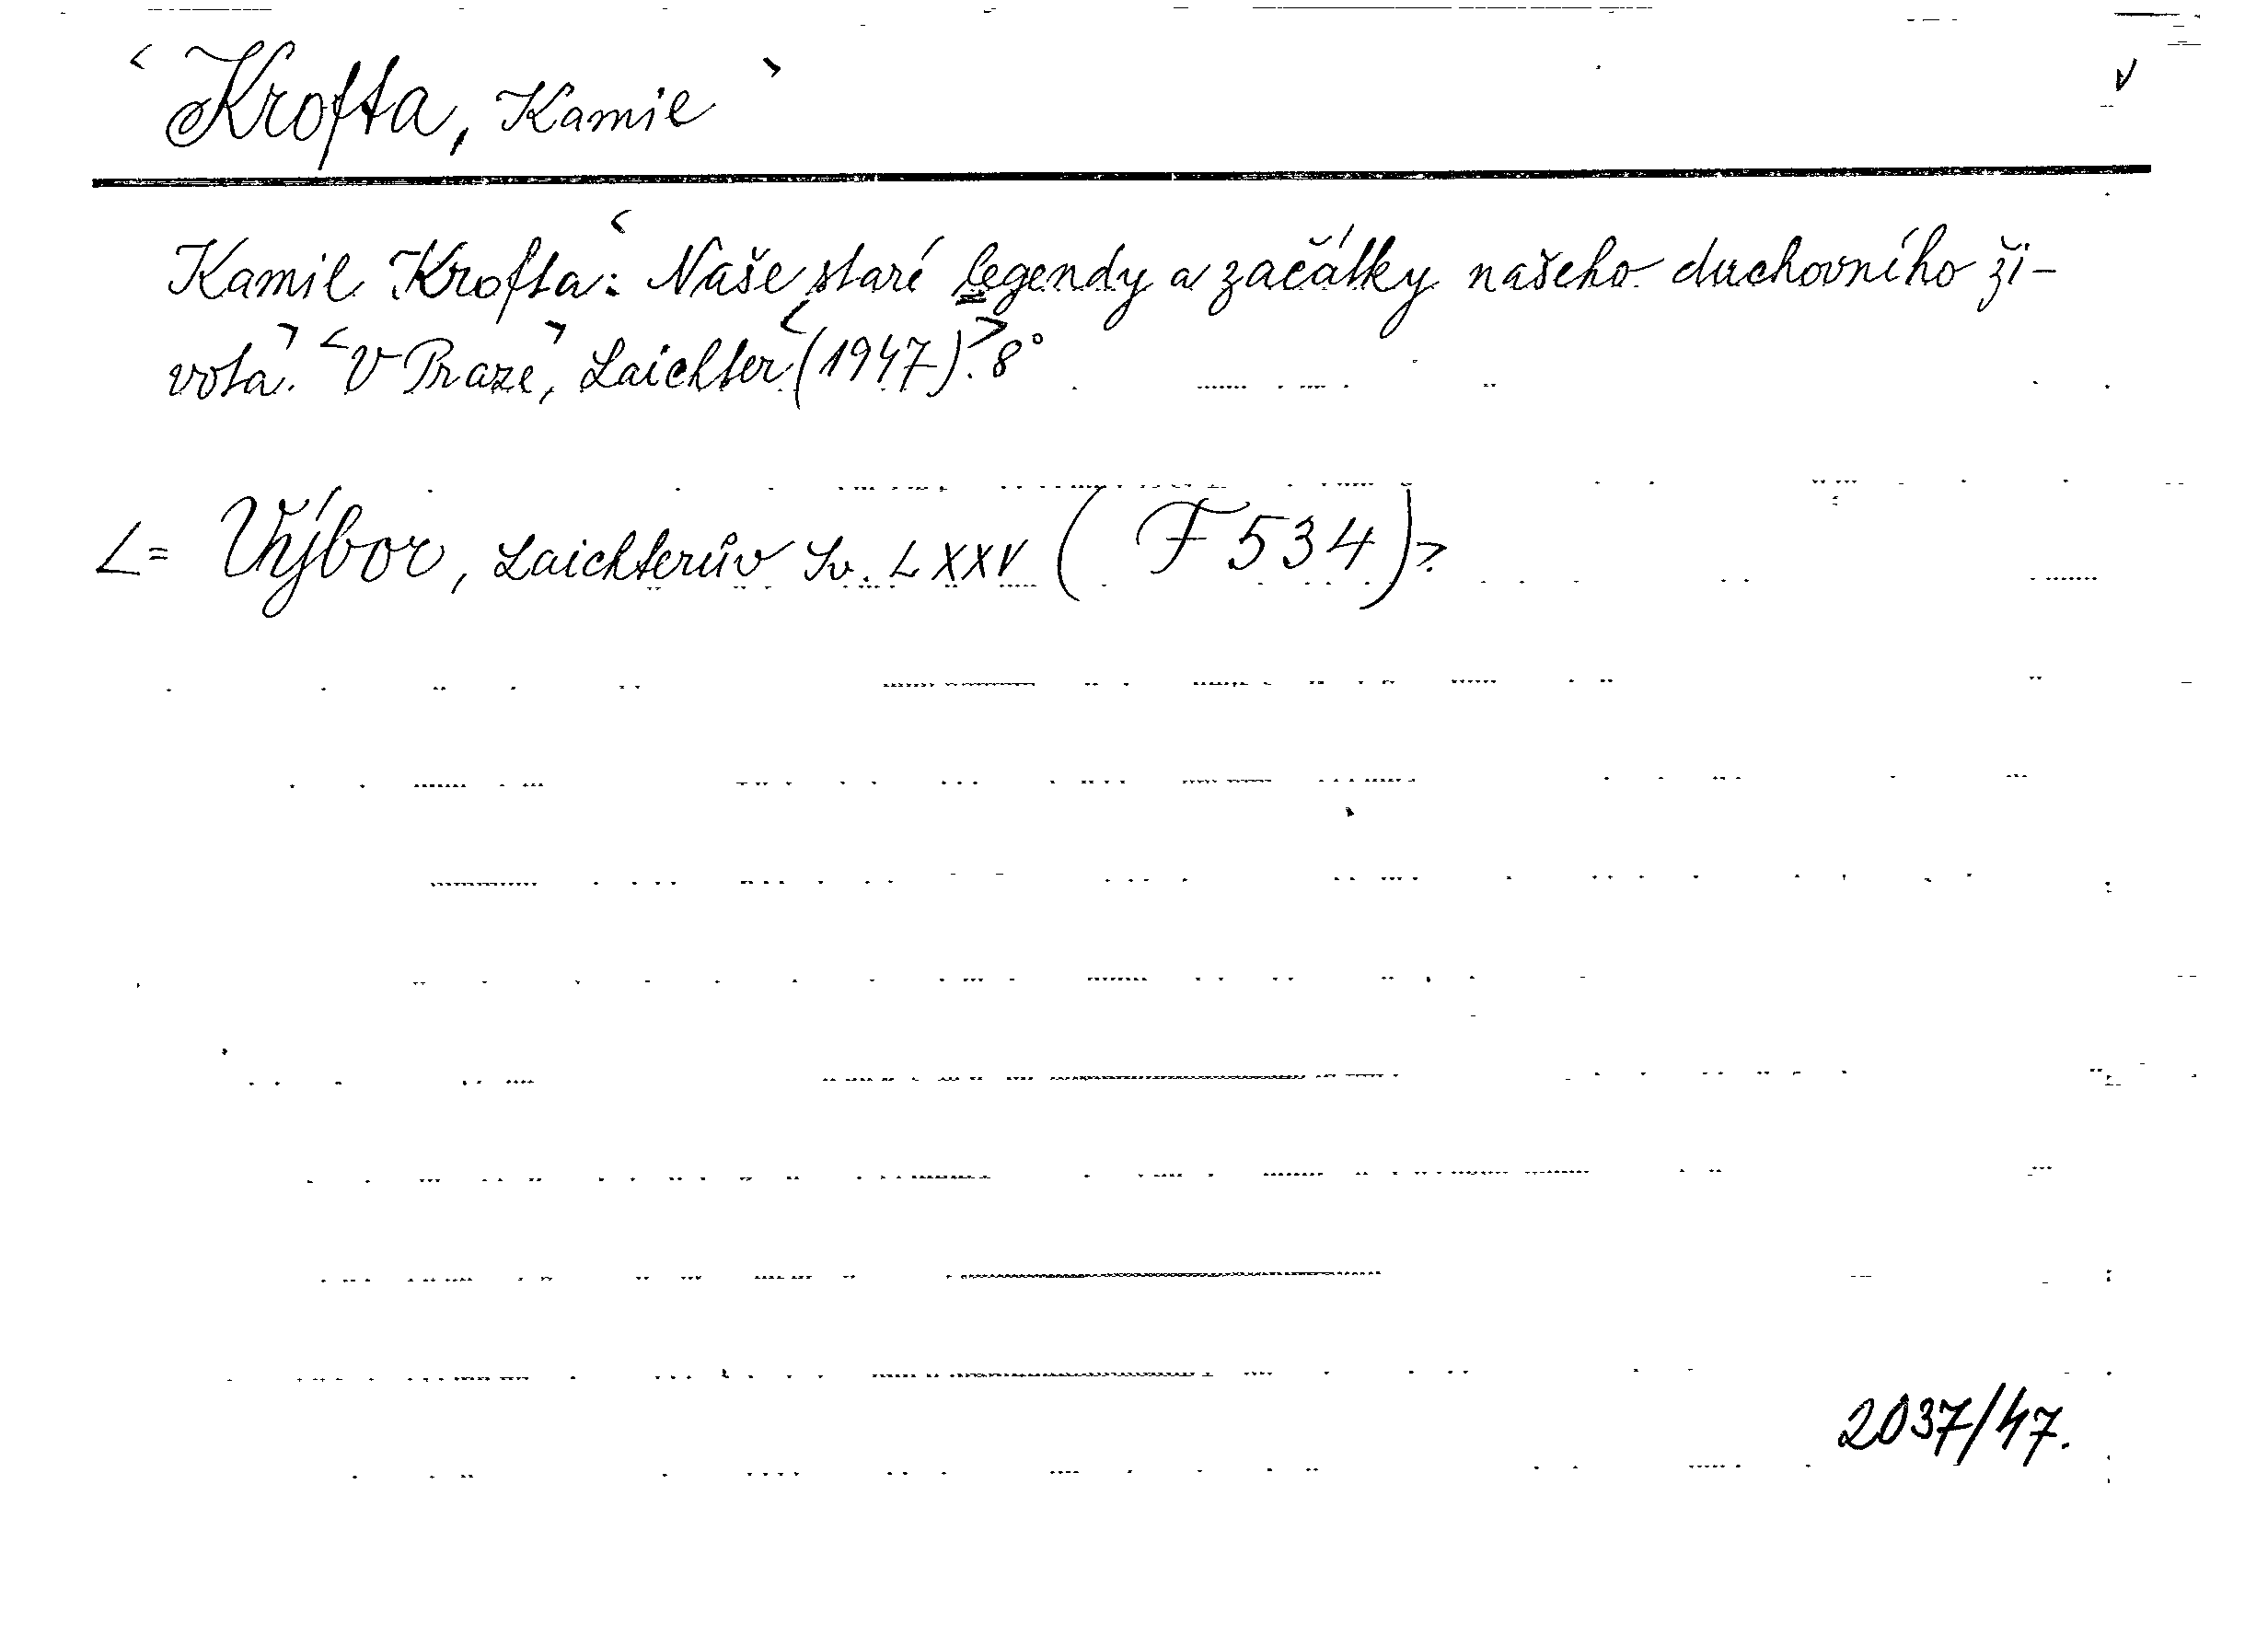 < Krofta, Kamil > v
Kamil Krofta: < Naše staré legendy a začátky našeho duchovního ži-
vota. > < V Praze, > Laichter < (1947). > 8°
< = Výbor, Laichterův Sv. LXXV ( F 534) >
2037/47.